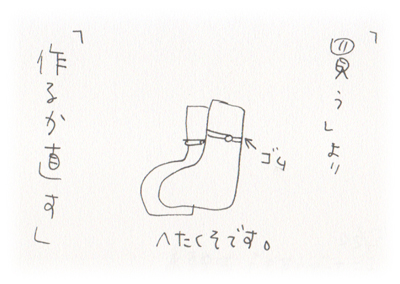 「買う」より
「作るか直す」
ゴム
へたくそです。